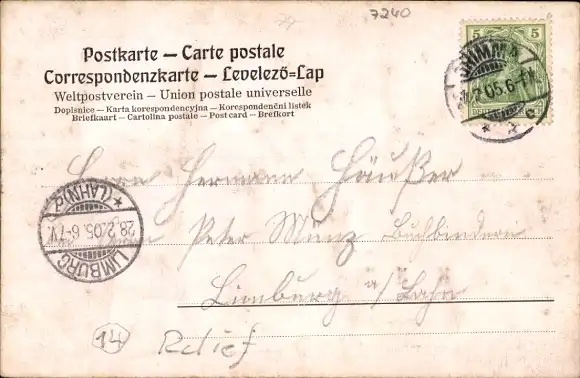 7240
Postkarte – Carte postale
Correspondenzkarte – Levelező=Lap
Weltpostverein – Union postale universelle
Dopisnice – Karta korespondencyjna – Korespondenční lístek
Briefkaart – Cartolina postale – Post card – Brefkort
5 5
05.6-7
Herrn Hermann Häußer
LIMBURG
(LAHN)
28.2.05.6-7V.
Peter Münz Buchbinderei
Limburg a/Lahn
14
Relief